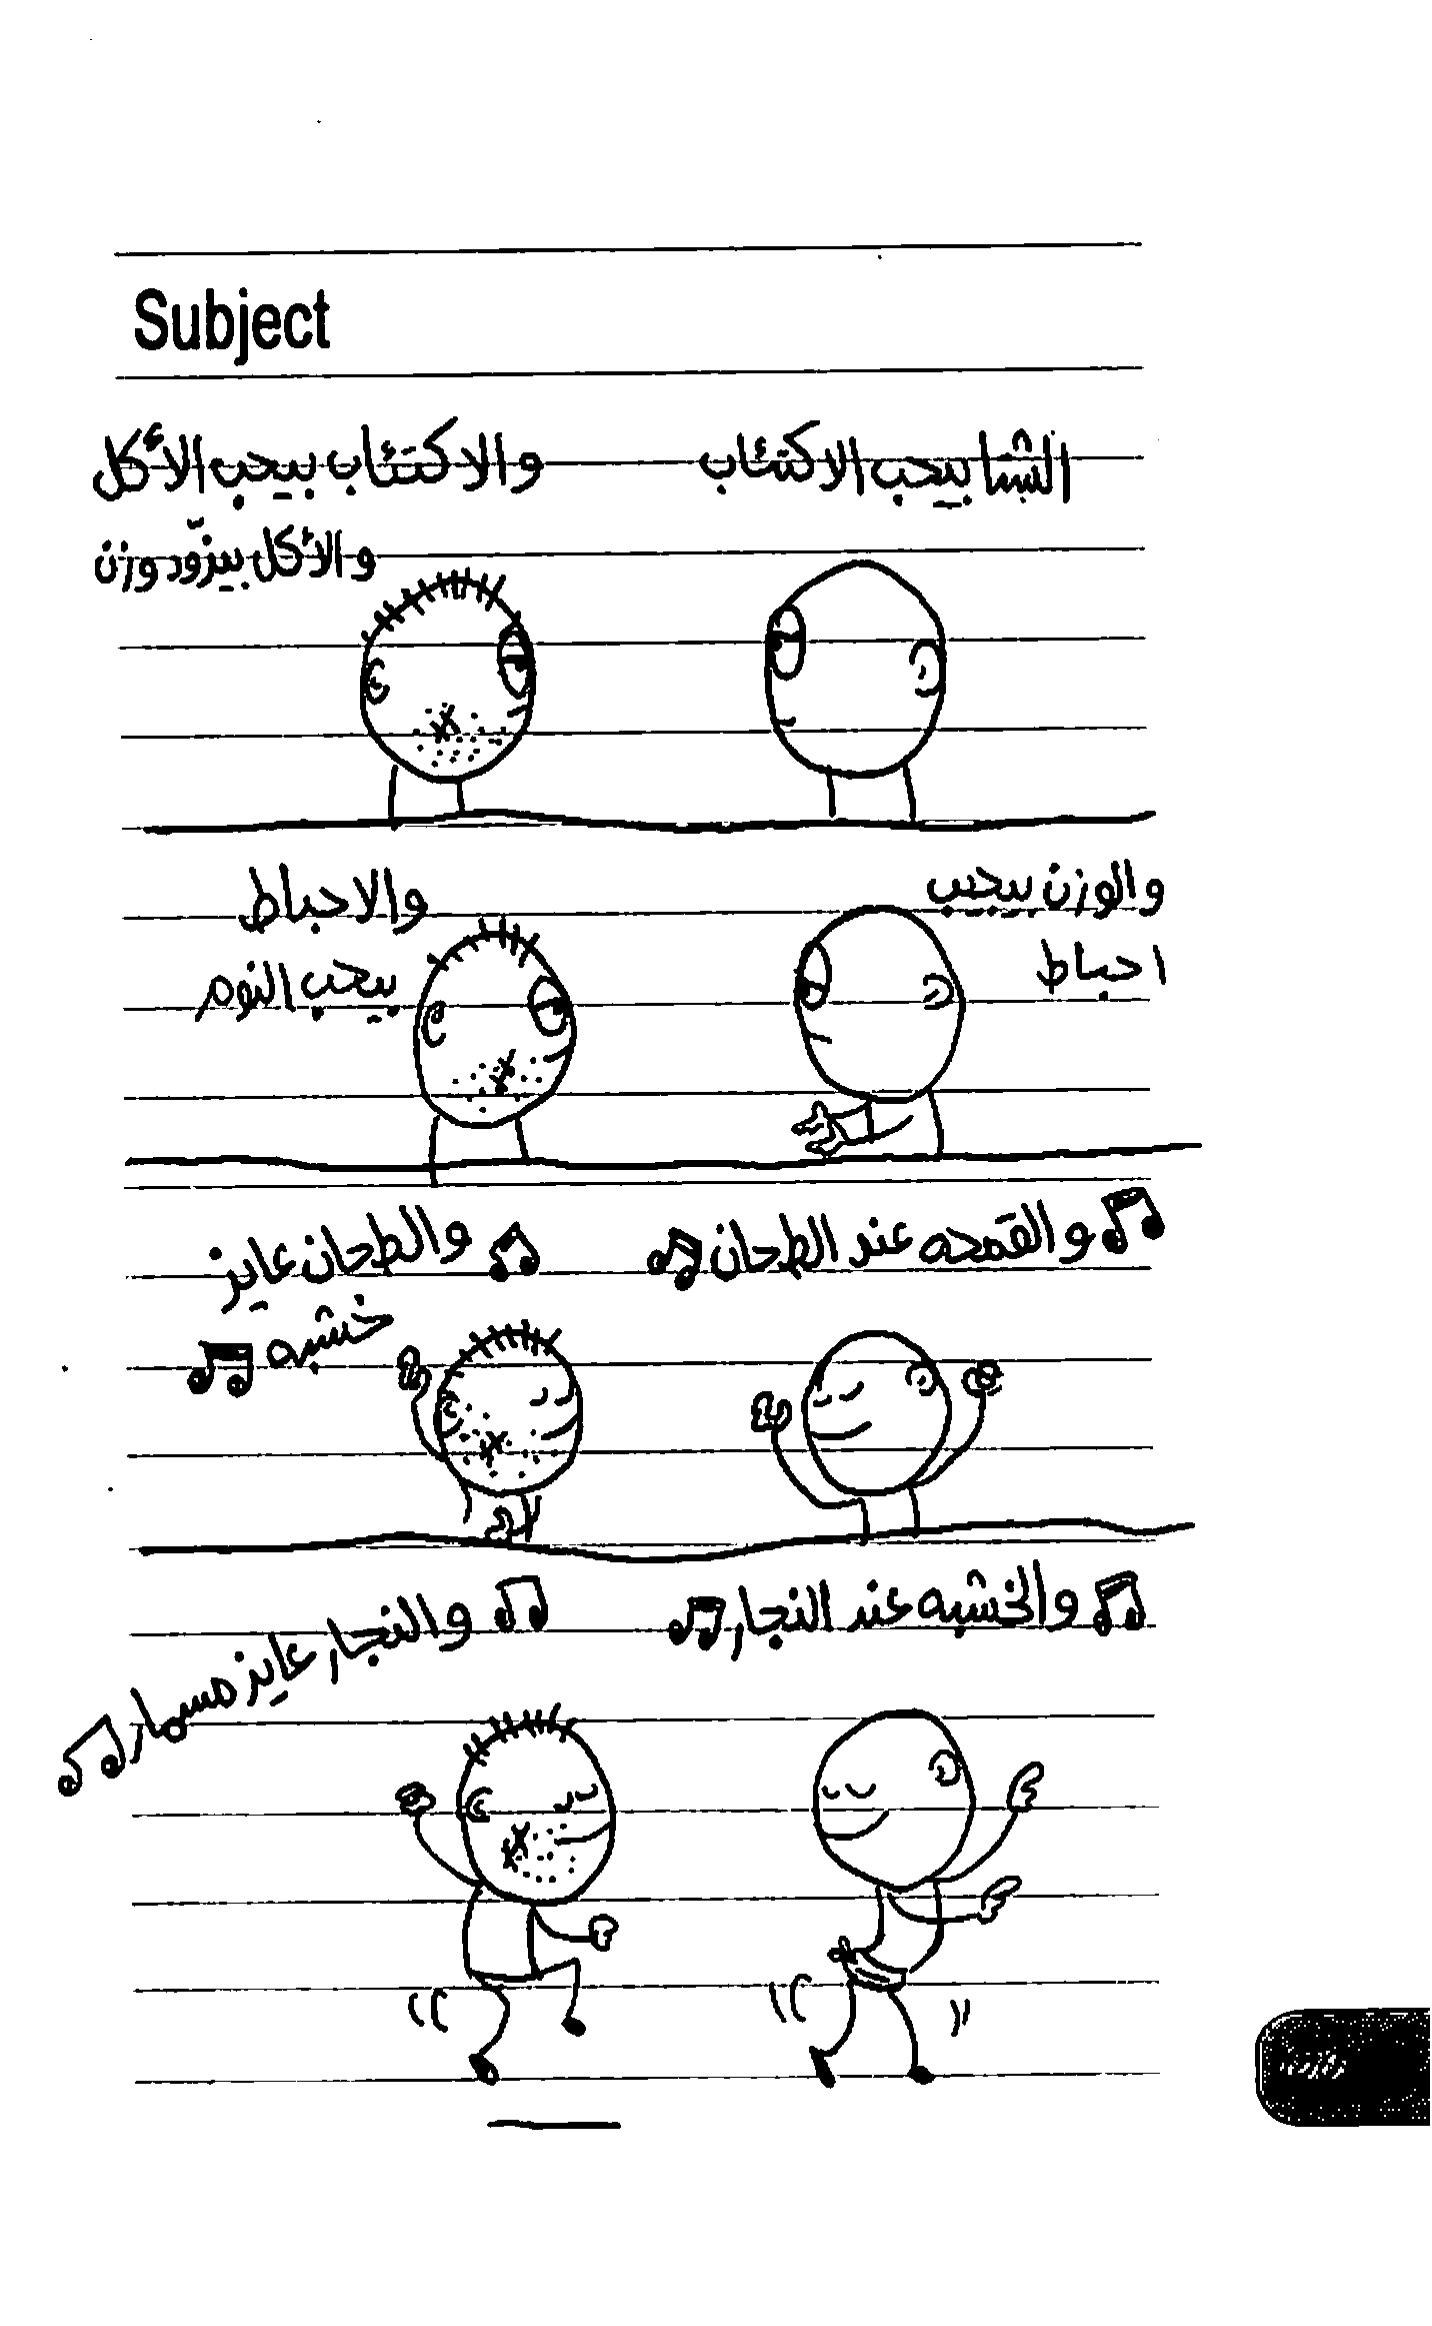 Subject
الشتا بيجب الاكتئاب
والاكتئاب بيجب الأكل
والأكل بيزوّد وزن
والوزن بيجيب
احباط
والاحباط
بيجب النوم
والقمحه عند الطحان
والطحان عايز
خشبه
والخشبه عند النجار
والنجار عايز مسمار